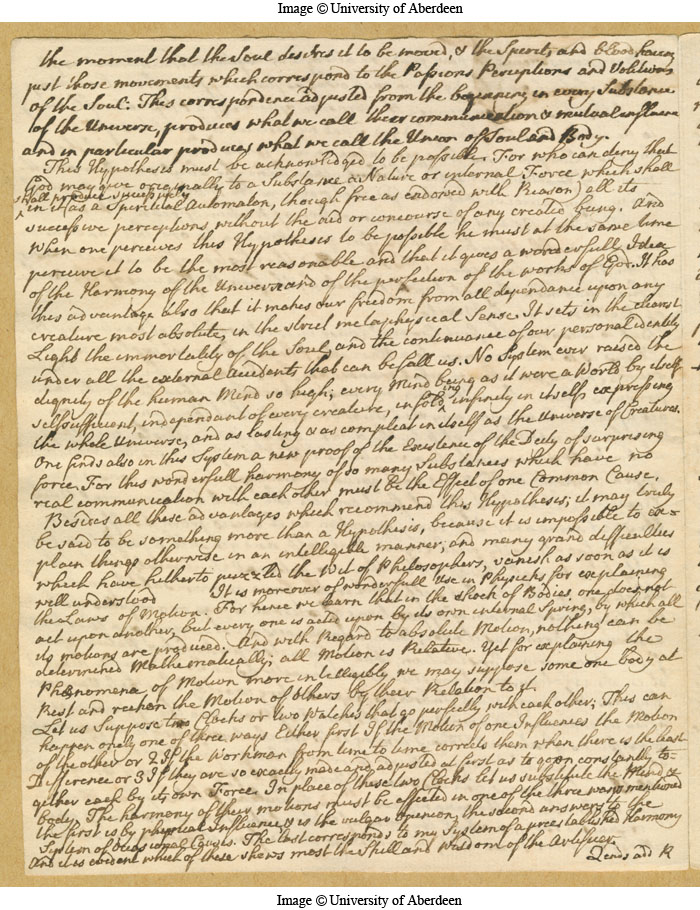 Image © University of Aberdeen
the moment that the Soul desires it to be moved, & the Spirits and blood having
just those movements which correspond to the Passions Perceptions and Volitions
of the Soul. This correspondence adjusted from the begining in every Substance
of the Universe, produces what we call their communication & mutual influence
and in particular produces what we call the Union of Soul and Body.
This Hypothesis must be acknowledged to be possible. For who can deny that
God may give originally to a Substance a Nature or internal Force which shall
shall produce successively
in it (as a Spiritual Automaton, though free as endowed with Reason) all its
successive perceptions, without the aid or concourse of any created being. And
when one perceives this Hypothesis to be possible he must at the same time
perceive it to be the most reasonable and that it gives a wonderfull Idea
of the Harmony of the Universe and of the perfection of the works of God. It has
this advantage also that it makes our freedom from all dependance upon any
creature most absolute, in the strict metaphysical Sense. It sets in the clearest
Light the immortality of the Soul, and the continuance of our personal identity
under all the external accidents that can befall us. No System ever raised the
dignity of the human Mind so high; every Mind being as it were a World by itself
selfsufficient, independant of every creature, infolding infinity in itself expressing
the whole Universe, and as lasting & as compleat in itself as the Universe of Creatures.
One finds also in this System a new proof of the Existence of the Deity of surprising
force. For this wonderfull harmony of so many Substances which have no
real communication with each other must be the Effect of one Common Cause.
Besides all these advantages which recommend this Hypothesis; it may truly
be said to be something more than a Hypothesis, because it is impossible to ex=
plain things otherwise in an intelligible manner, and many grand difficulties
which have hitherto puzzled the Wit of Philosophers, vanish as soon as it is
well understood It is moreover of wonderfull Use in Physicks for explaining
the Laws of Motion. For hence we learn that in the shock of Bodies, one does not
act upon another, but every one is acted upon by its own internal Spring, by which all
its motions are produced. And with Regard to absolute Motion, nothing can be
determined Mathematically, all Motion is Relative. Yet for explaining the
Phænomena of Motion more intelligibly we may suppose some one body at
Rest and reckon the Motion of others by their Relation to it.
Let us Suppose two Clocks or two Watches that go perfectly with each other; This can
happen onely one of three ways Either first If the Motion of one Influences the Motion
of the other or 2 If the Workman from time to time corrects them when there is the least
Difference or 3 If they are so exactly made and adjusted at first as to go on constantly to=
gether each by its own Force. In place of these two Clocks let us substitute the Mind &
Body. The harmony of their motions must be effected in one of the three ways mentioned
the first is by physical Influence & is the vulgar opinion, the second answers to the
System of Occasional Causes. The last corresponds to my System of a preestablished Harmony
And it is evident which of these shews most the Skill and Wisdom of the Artificer.
Image © University of Aberdeen